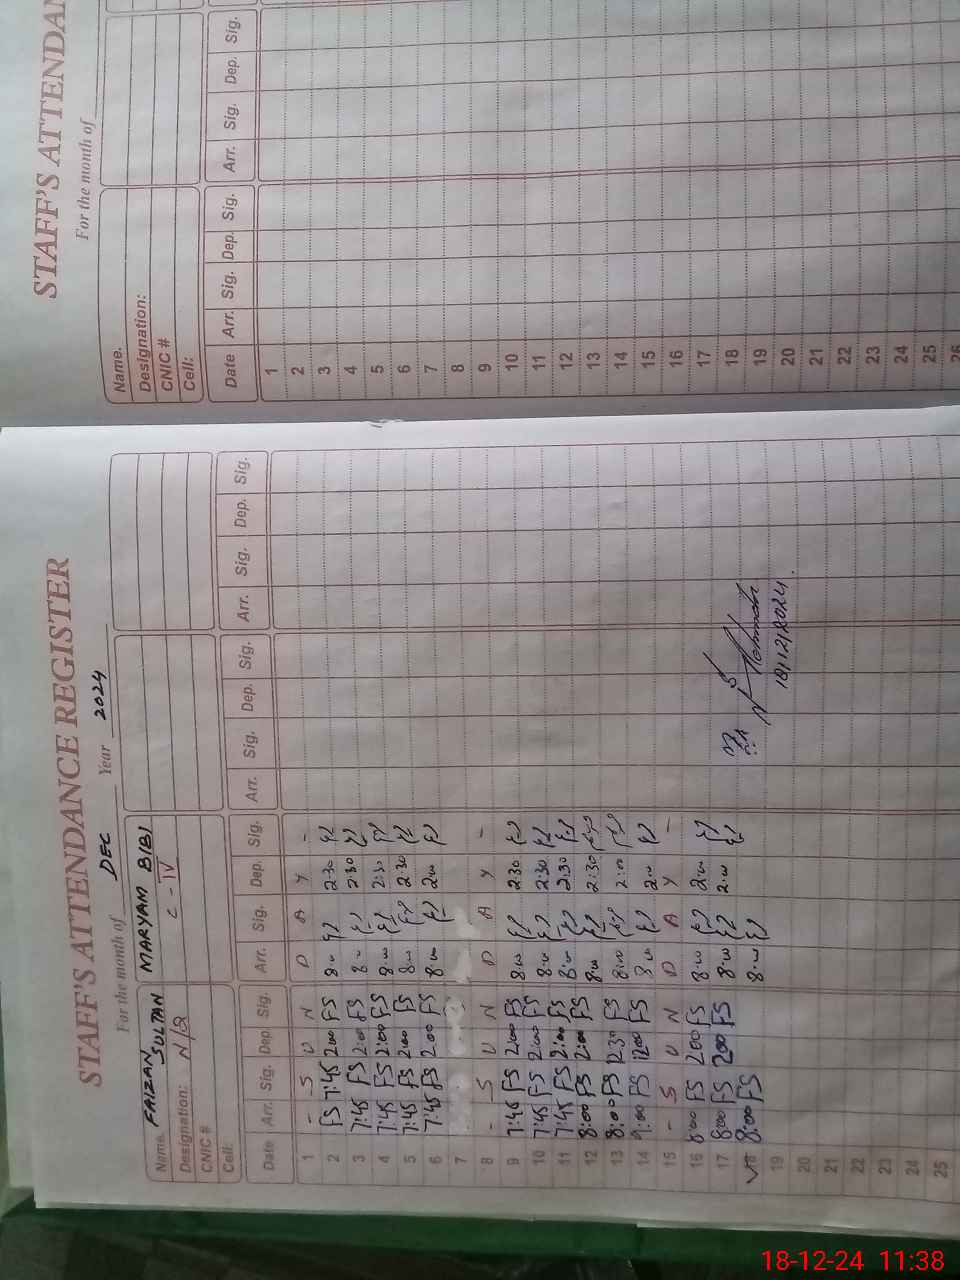 STAFF'S ATTENDANCE REGISTER
For the month of DEC Year 2024
Name. FAIZAN SULTAN MARYAM BIBI
Designation: N/Q C-IV
CNIC #
Cell:
Date Arr. Sig. Dep. Sig. Arr. Sig. Dep. Sig. Arr. Sig. Dep. Sig. Arr. Sig. Dep. Sig.
1 - S U N D A Y -
2 FS 7:45 2:00 FS 8:00 2:30
3 7:45 FS 2:00 FS 8:00 2:30
4 7:45 FS 2:00 FS 8:00 2:30
5 7:45 FS 2:00 FS 8:00 2:30
6 7:45 FS 2:00 FS 8:00 2:00
7
8 - S U N D A Y -
9 7:45 FS 2:00 FS 8:00 2:30
10 7:45 FS 2:00 FS 8:00 2:30
11 7:45 FS 2:00 FS 8:00 2:30
12 8:00 FS 2:00 FS 8:00 2:30
13 8:00 FS 12:30 FS 8:00 2:00
14 9:00 FS 12:00 FS 8:00 2:00
15 - S U N D A Y -
16 8:00 FS 2:00 FS 8:00 2:00
17 8:00 FS 2:00 FS 8:00 2:00
18 8:00 FS 8:00
19
20
21
22
23
24
25
18/12/2024.
STAFF'S ATTENDAN
For the month of
Name.
Designation:
CNIC #
Cell:
Date Arr. Sig. Dep. Sig. Arr. Sig. Dep. Sig.
1
2
3
4
5
6
7
8
9
10
11
12
13
14
15
16
17
18
19
20
21
22
23
24
25
26
18-12-24 11:38